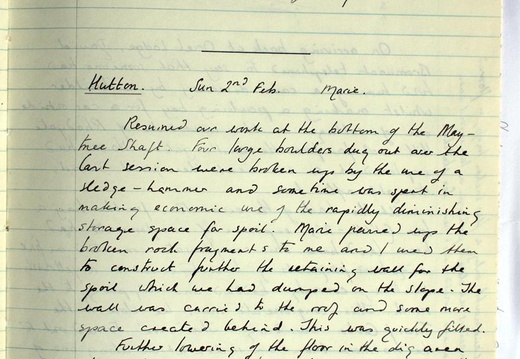 Hutton. Sun 2nd Feb. Marie.
Resumed our work at the bottom of the May-
tree Shaft. Four large boulders dug out over the
last session were broken up by the use of a
sledge-hammer and some time was spent in
making economic use of the rapidly diminishing
storage space for spoil. Marie passed up the
broken rock fragments to me and I used them
to construct further the retaining wall for the
spoil which we had dumped on the slope. The
wall was carried to the roof and some more
space created behind. This was quickly filled.
Further lowering of the floor in the dig area